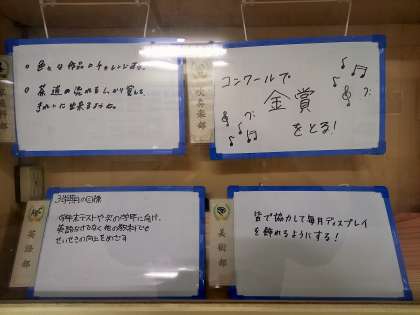 ○ 色々な作品にチャレンジする。
○ 茶道の流れをしっかり覚えて、
きれいに出来るようにする。
コンクールで
金賞
をとる!
吹奏楽部
3学期の目標
学年末テストや次の学年に向け、
英語だけでなく他の教科でも
せいせきの向上をめざす
英語部
皆で協力して毎月ディスプレイ
を飾れるようにする!
美術部